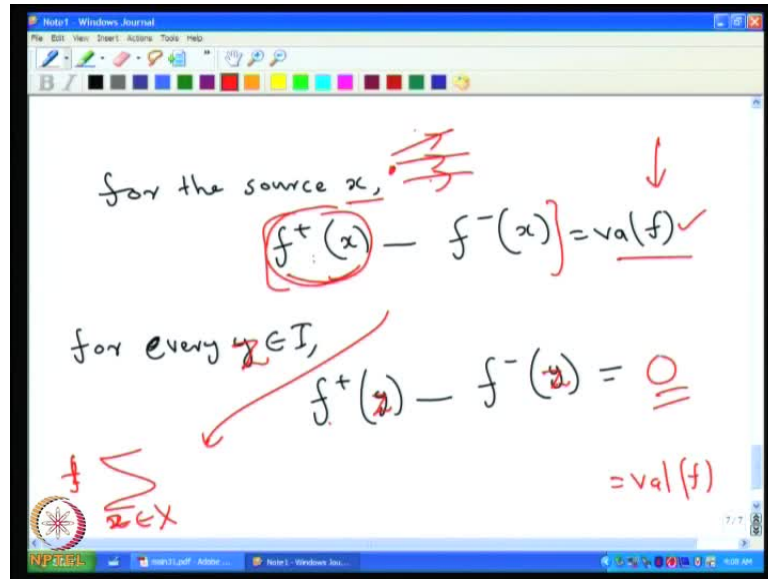 Note1 - Windows Journal
File Edit View Insert Actions Tools Help
B I
for the source x,
f⁺(x) − f⁻(x) = va(f) ✓
for every z ∈ I,
f⁺(z) − f⁻(z) = 0
Σ x ∈ X = val(f)
7/7
NPTEL
main31.pdf - Adobe ... Note1 - Windows Jou... 4:08 AM